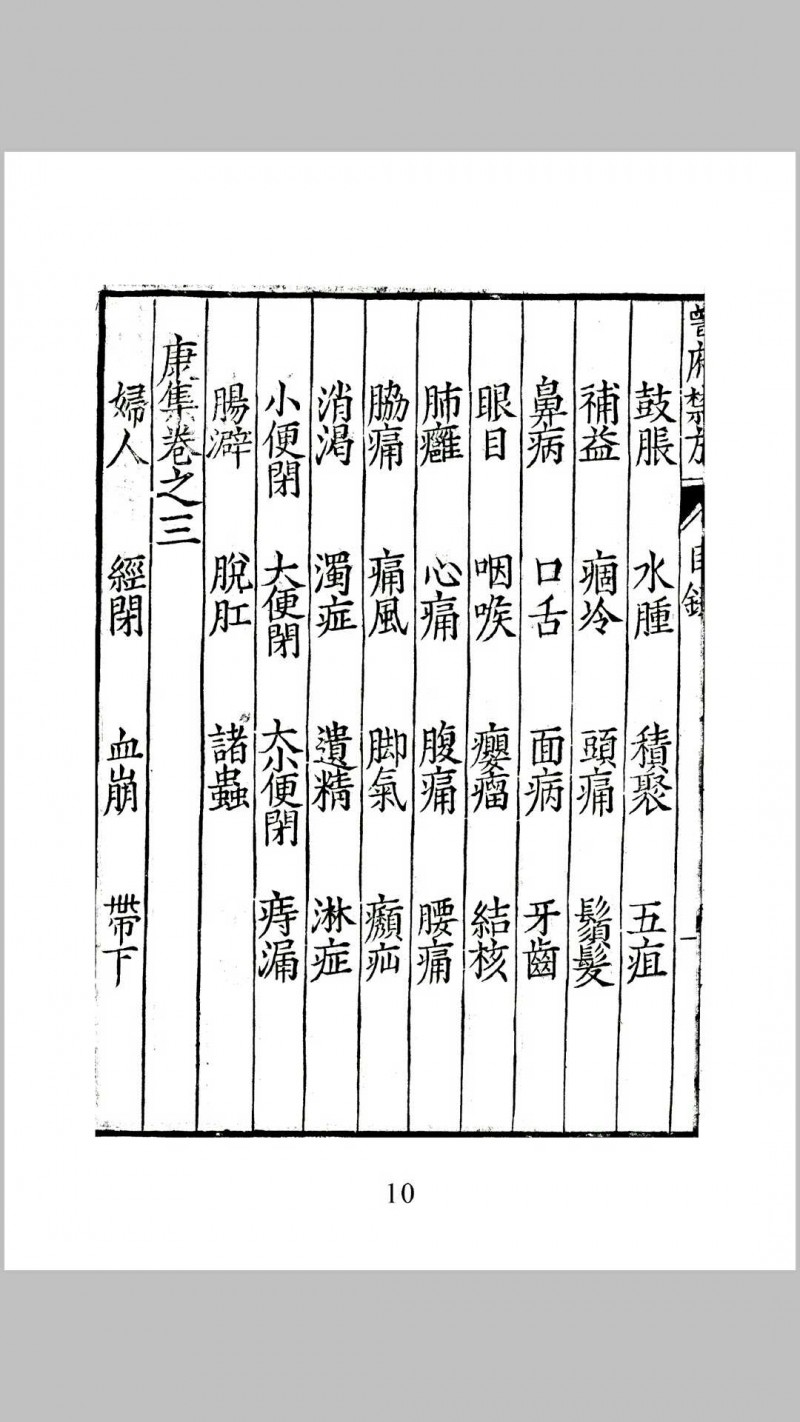 魯府禁方
目錄
一
鼓脹 水腫 積聚 五疸
補益 痼冷 頭痛 鬚髮
鼻病 口舌 面病 牙齒
眼目 咽喉 癭瘤 結核
肺癰 心痛 腹痛 腰痛
脇痛 痛風 脚氣 癩疝
消渴 濁症 遺精 淋症
小便閉 大便閉 大小便閉 痔漏
腸澼 脫肛 諸蟲
康集卷之三
婦人 經閉 血崩 帶下
10